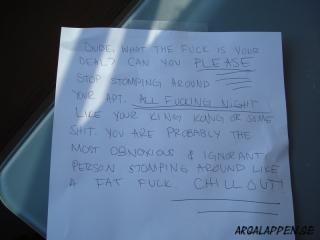 DUDE, WHAT THE FUCK IS YOUR
DEAL? CAN YOU PLEASE
STOP STOMPING AROUND
YOUR APT. ALL FUCKING NIGHT
LIKE YOUR KING KONG OR SOME
SHIT. YOU ARE PROBABLY THE
MOST OBNOXIOUS & IGNORANT
PERSON STOMPING AROUND LIKE
A FAT FUCK. CHILL OUT!
ARGALAPPEN.SE